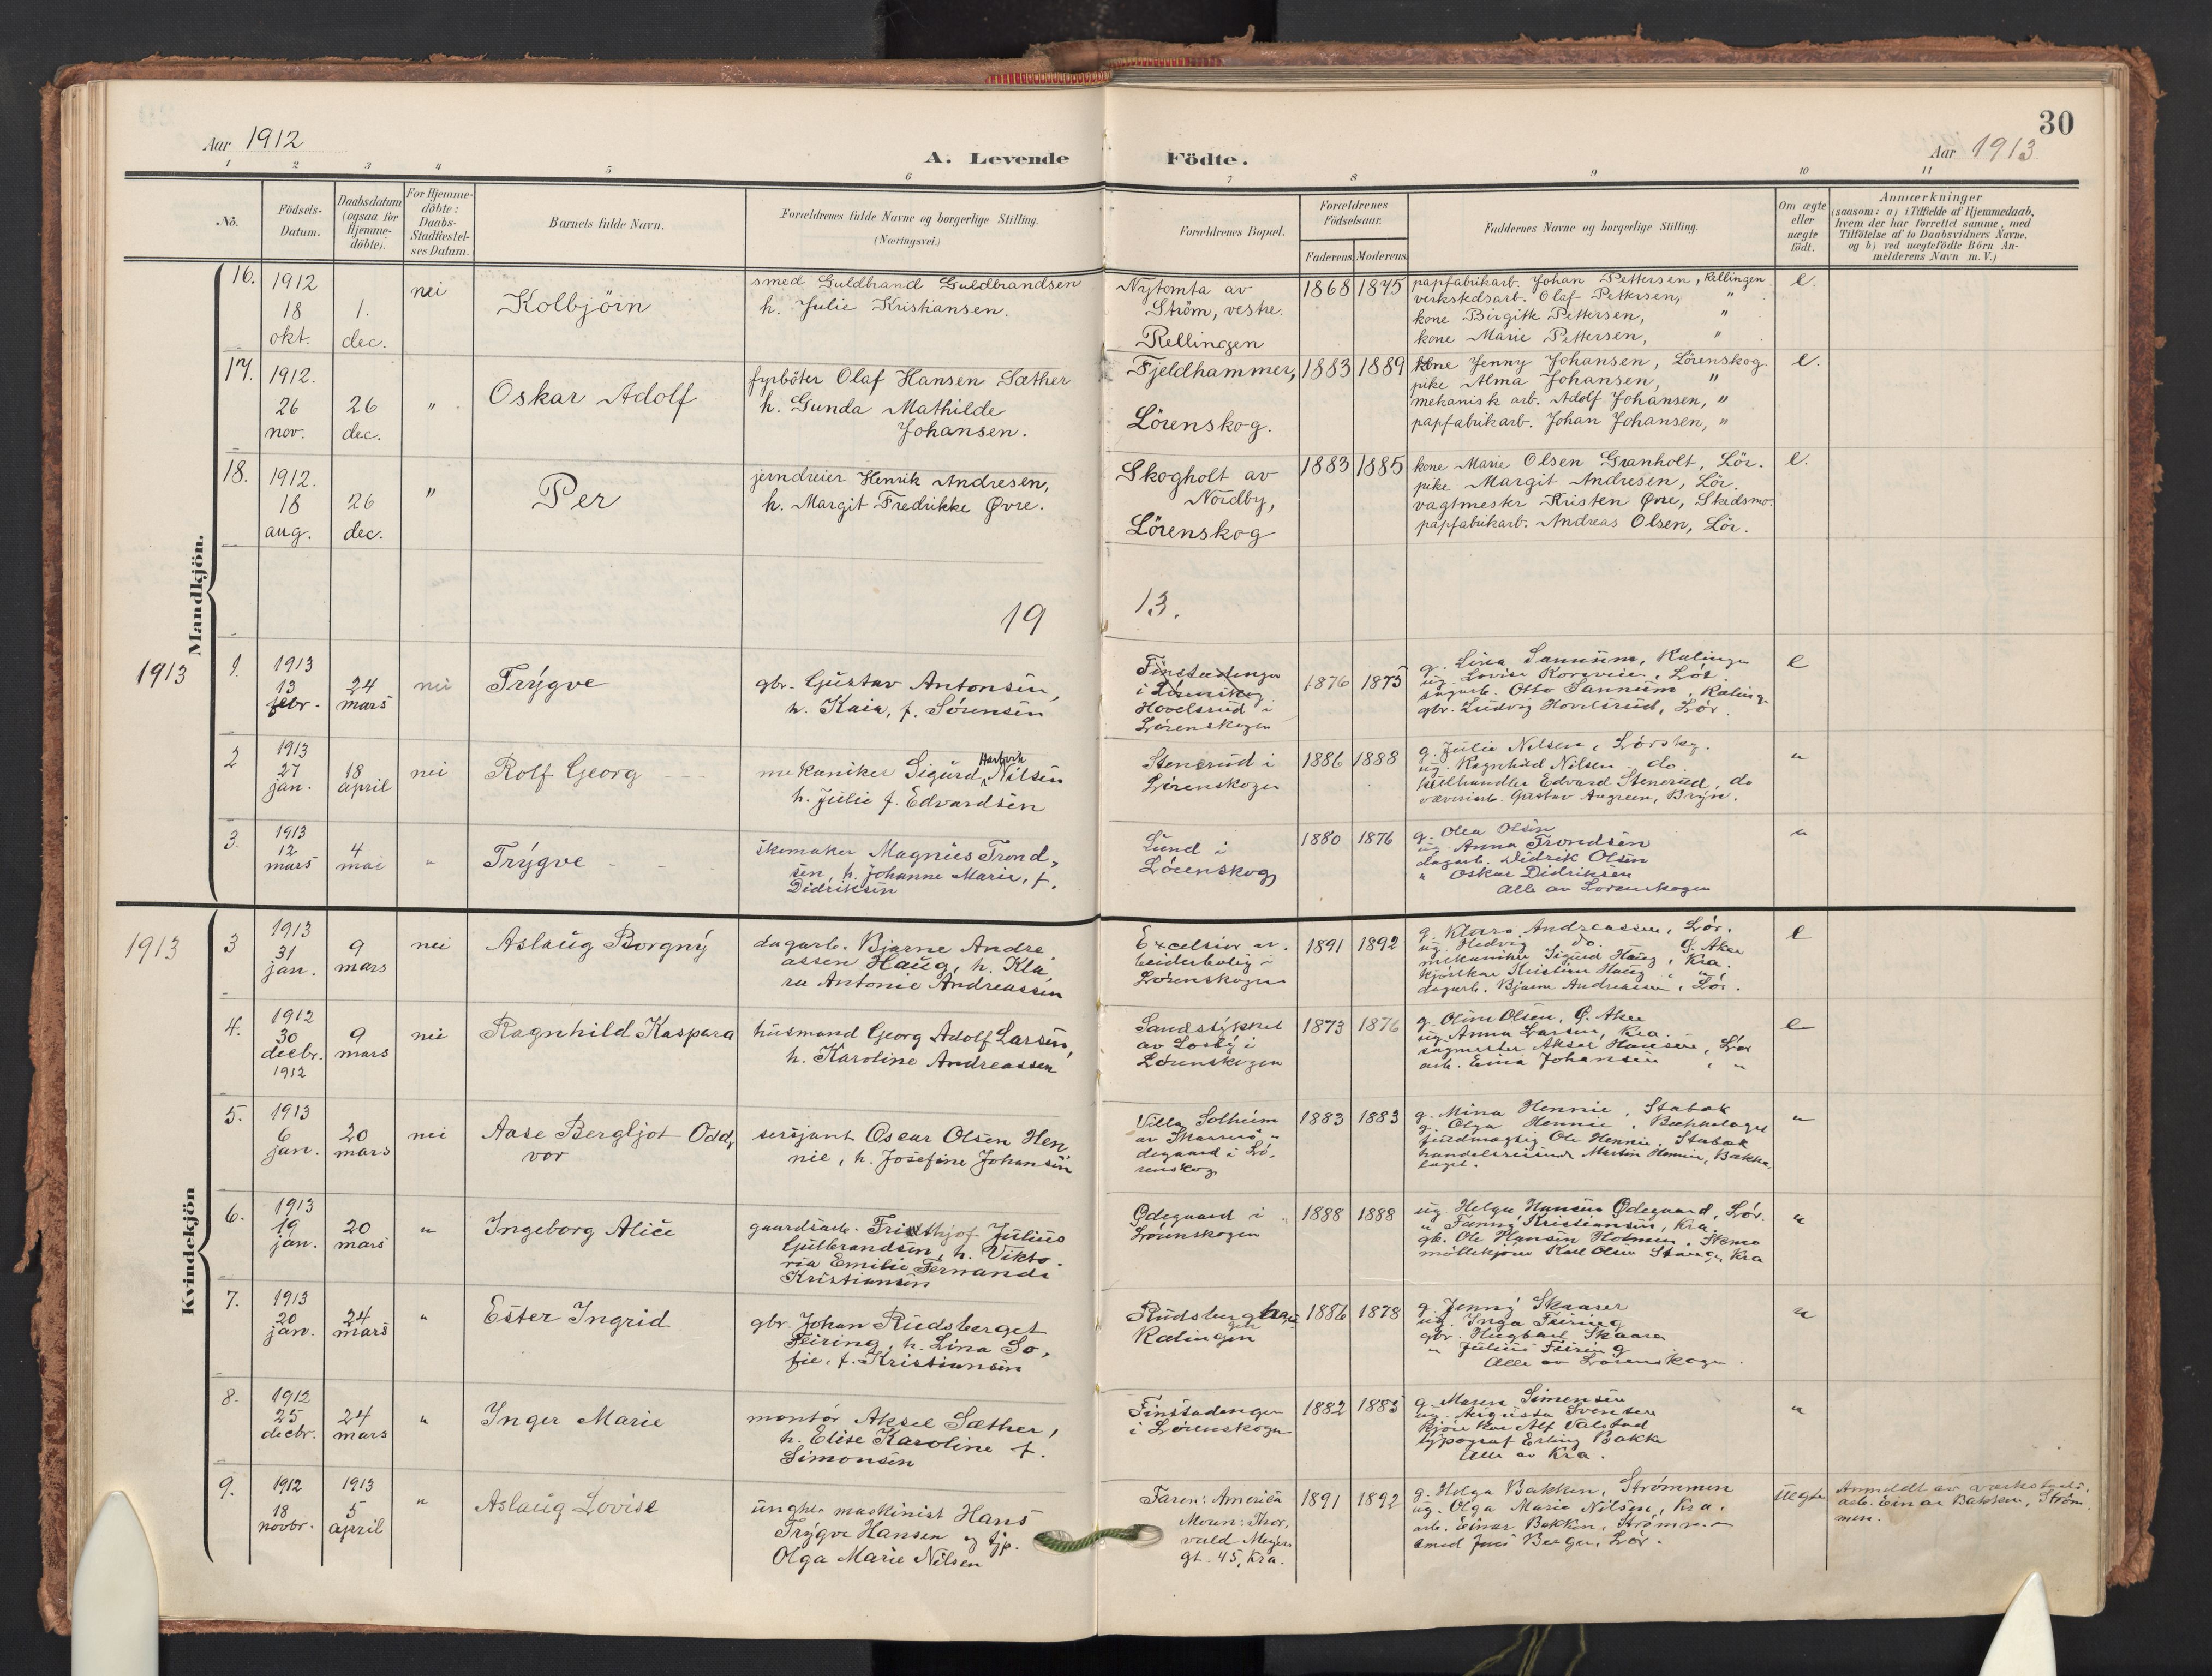 30
Aar 1912
A. Levende Födte.
Aar 1913
1 2 3 4 5 6 7 8 9 10 11
No.
Födsels-Datum.
Daabsdatum (ogsaa for Hjemme-döbte).
For Hjemme-döbte: Daabs-Stadfæstel-ses Datum.
Barnets fulde Navn.
Forældrenes fulde Navne og borgerlige Stilling. (Næringsvei.)
Forældrenes Bopæl.
Forældrenes Födselsaar.
Faderens Moderens
Faddernes Navne og borgerlige Stilling.
Om ægte eller uægte födt.
Anmærkninger
(saasom: a) i Tilfælde af Hjemmedaab,
hvem der har forrettet samme, med
Tilföielse af to Daabsvidners Navne.
og b) ved uægtefödte Börn An-
melderens Navn m. V.)
Mandkjön.
16. 1912 18 okt. 1. dec. nei
Kolbjörn
smed Guldbrand Guldbrandsen
h. Julie Kristiansen.
Nytomta av
Ström, vestre.
Rellingen
1868 1875
papfabrikarb. Johan Pettersen, Rellingen
verkstedsarb. Olaf Pettersen, "
kone Birgitte Pettersen, "
kone Marie Pettersen, "
e.
17. 1912. 26 nov. 26 dec. "
Oskar Adolf
fyrböter Olaf Hansen Sæther
h. Gunda Mathilde
Johansen.
Fjeldhammer,
Lörenskog.
1883 1889
kone Jenny Johansen, Lörenskog
pike Alma Johansen, "
mekanisk arb. Adolf Johansen, "
papfabrikarb. Johan Johansen, "
e.
18. 1912. 18 aug. 26 dec. "
Per
jerndreier Henrik Andresen,
h. Margit Fredrikke Øvre.
Skogholt av
Nordby,
Lörenskog
1883 1885
kone Marie Olsen Granholt, Lör.
pike Margit Andresen, Lör.
vagtmester Kristen Øvre, Skedsmo.
papfabrikarb. Andreas Olsen, Lör.
e.
19 13.
1913
1. 1913 13 febr. 24 mars nei
Trygve
gbr. Gustav Antonsen,
h. Kaia, f. Sørensen
i Lørenskog
Hovelsrud i
Lørenskogen
1876 1875
g. Lina Sannum,
ug. Lovise Korsveien, Lør.
Otto Sannum,
gbr. Ludvig Hovelsrud, Lør.
e
2 1913 27 jan. 18 april nei
Rolf Georg
mekaniker Sigurd Hartvik Nilsen
h. Julie f. Edvardsen
Stenerud i
Lørenskogen
1886 1888
g. Julie Nilsen, Lørskg.
ug. Ragnhild Nilsen do.
Edvard Stenerud, do
Gustav Bryn.
"
3. 1913 12 mars 4 mai "
Trygve
skomaker Magnus Trond-
sen, h. Johanne Marie, f.
Didriksen
Lund i
Lørenskog
1880 1876
g. Olea Olsen
ug. Anna Trondsen
dagarb. Didrik Olsen
" Oskar Didriksen
Alle av Lørenskogen
"
Kvindekjön
1913
3 1913 31 jan. 9 mars nei
Aslaug Borgny
dagarb. Bjarne Andre-
assen Haug, h. Kla-
ra Antonie Andreassen
Excelsior ar-
beiderbolig i
Lørenskogen
1891 1892
g. Klara Andreassen, Lør.
ug. Hedvig do. Ø. Aker
mekaniker Sigurd Haug, Kra.
kjørekar Kristian Haug, "
dagarb. Bjarne Andreassen, Lør.
e
4. 1912 30 decbr. 1912 9 mars nei
Ragnhild Kaspara
husmand Georg Adolf Larsen,
h. Karoline Andreassen
Sandstykket
av Losby i
Lørenskogen
1873 1876
g. Oline Olsen, Ø. Aker
ug. Anna Larsen, Kra.
sagmester Aksel Hansen, Lør
arb. Johansen, "
e
5. 1913 6 jan. 20 mars nei
Aase Bergljot Odd-
vor
sersjant Oscar Olsen Hen-
nie, h. Josefine Johansen
Villa Solheim
av Skaarer ø-
degaard i Lø-
renskog
1883 1883
g. Mina Hennie, Stabæk
g. Olga Hennie, Bækkelaget
fuldmægtig Ole Hennie, Stabæk
handelsreisende Martin Hennie, Bække-
laget.
"
6. 1913 19 jan. 20 mars "
Ingeborg Alice
gaardsarb. Fridthjof Julius
Gulbrandsen, h. Vikto-
ria Emilie Fernanda
Kristiansen
Ødegaard i
Lørenskogen
1888 1888
ug. Helga Hansen Ødegaard, Lør.
" Fanny Kristiansen, Kra.
gb. Ole Hansen
møllekjører Karl Olsen Kra
"
7. 1913 20 jan. 24 mars "
Ester Ingrid
gbr. Johan Rudsberget
Feiring, h. Lina So-
fie, f. Kristiansen
Rudsberget
Rælingen
1886 1878
g. Jenny Skaarer
ug. Inga Feiring
gbr. Skaarer
" Julius Feiring
Alle av Lørenskogen.
"
8. 1912 25 decbr. 24 mars "
Inger Marie
montør Aksel Sæther,
h. Elise Karoline f.
Simonsen
Finstadengen
i Lørenskogen
1882 1885
g. Maren Simensen
ug. Augusta Svensen
kjørekar Alf Valstad
typograf Erling Bakke
Alle av Kra.
"
9. 1912 18 novbr. 1913 5 april "
Aslaug Lovise
ungkar maskinist Hans
Trygve Hansen og pp.
Olga Marie Nilsen
Faren: Amerika
Moren: Thor-
vald Meyers
gt. 45, Kra.
1891 1892
g. Helga Bakken, Strømmen
ug. Olga Marie Nilsen, Kra.
arb. Einar Bakken, Strømmen
smed Berger, Lør.
Uegte
Anmeldt av verksteds-
arb. Einar Bakken, Strøm-
men.